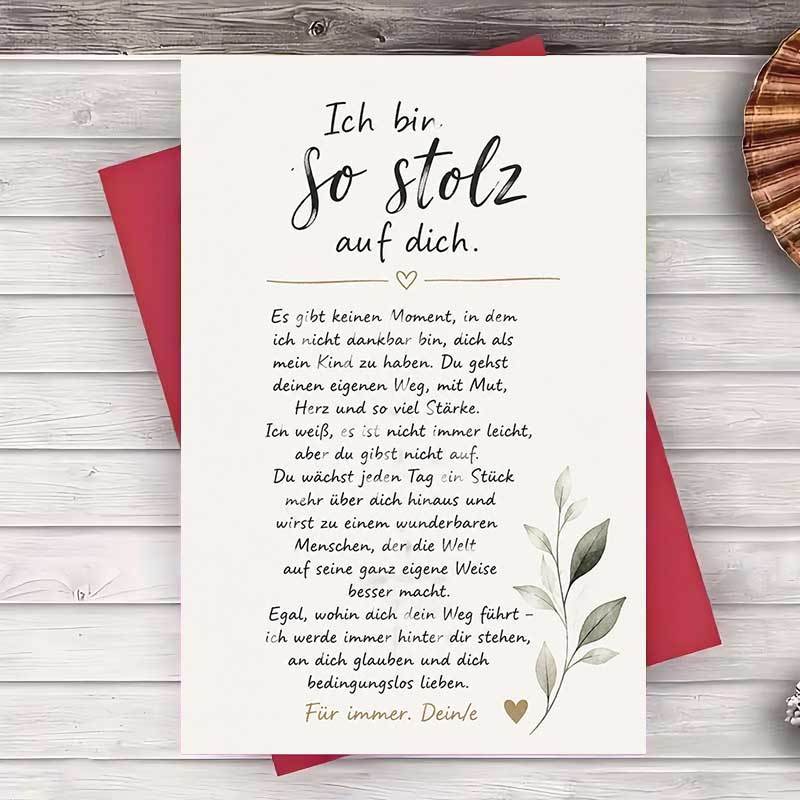 Ich bin
so stolz
auf dich.
Es gibt keinen Moment, in dem
ich nicht dankbar bin, dich als
mein Kind zu haben. Du gehst
deinen eigenen Weg, mit Mut,
Herz und so viel Stärke.
Ich weiß, es ist nicht immer leicht,
aber du gibst nicht auf.
Du wächst jeden Tag ein Stück
mehr über dich hinaus und
wirst zu einem wunderbaren
Menschen, der die Welt
auf seine ganz eigene Weise
besser macht.
Egal, wohin dich dein Weg führt –
ich werde immer hinter dir stehen,
an dich glauben und dich
bedingungslos lieben.
Für immer. Dein/e